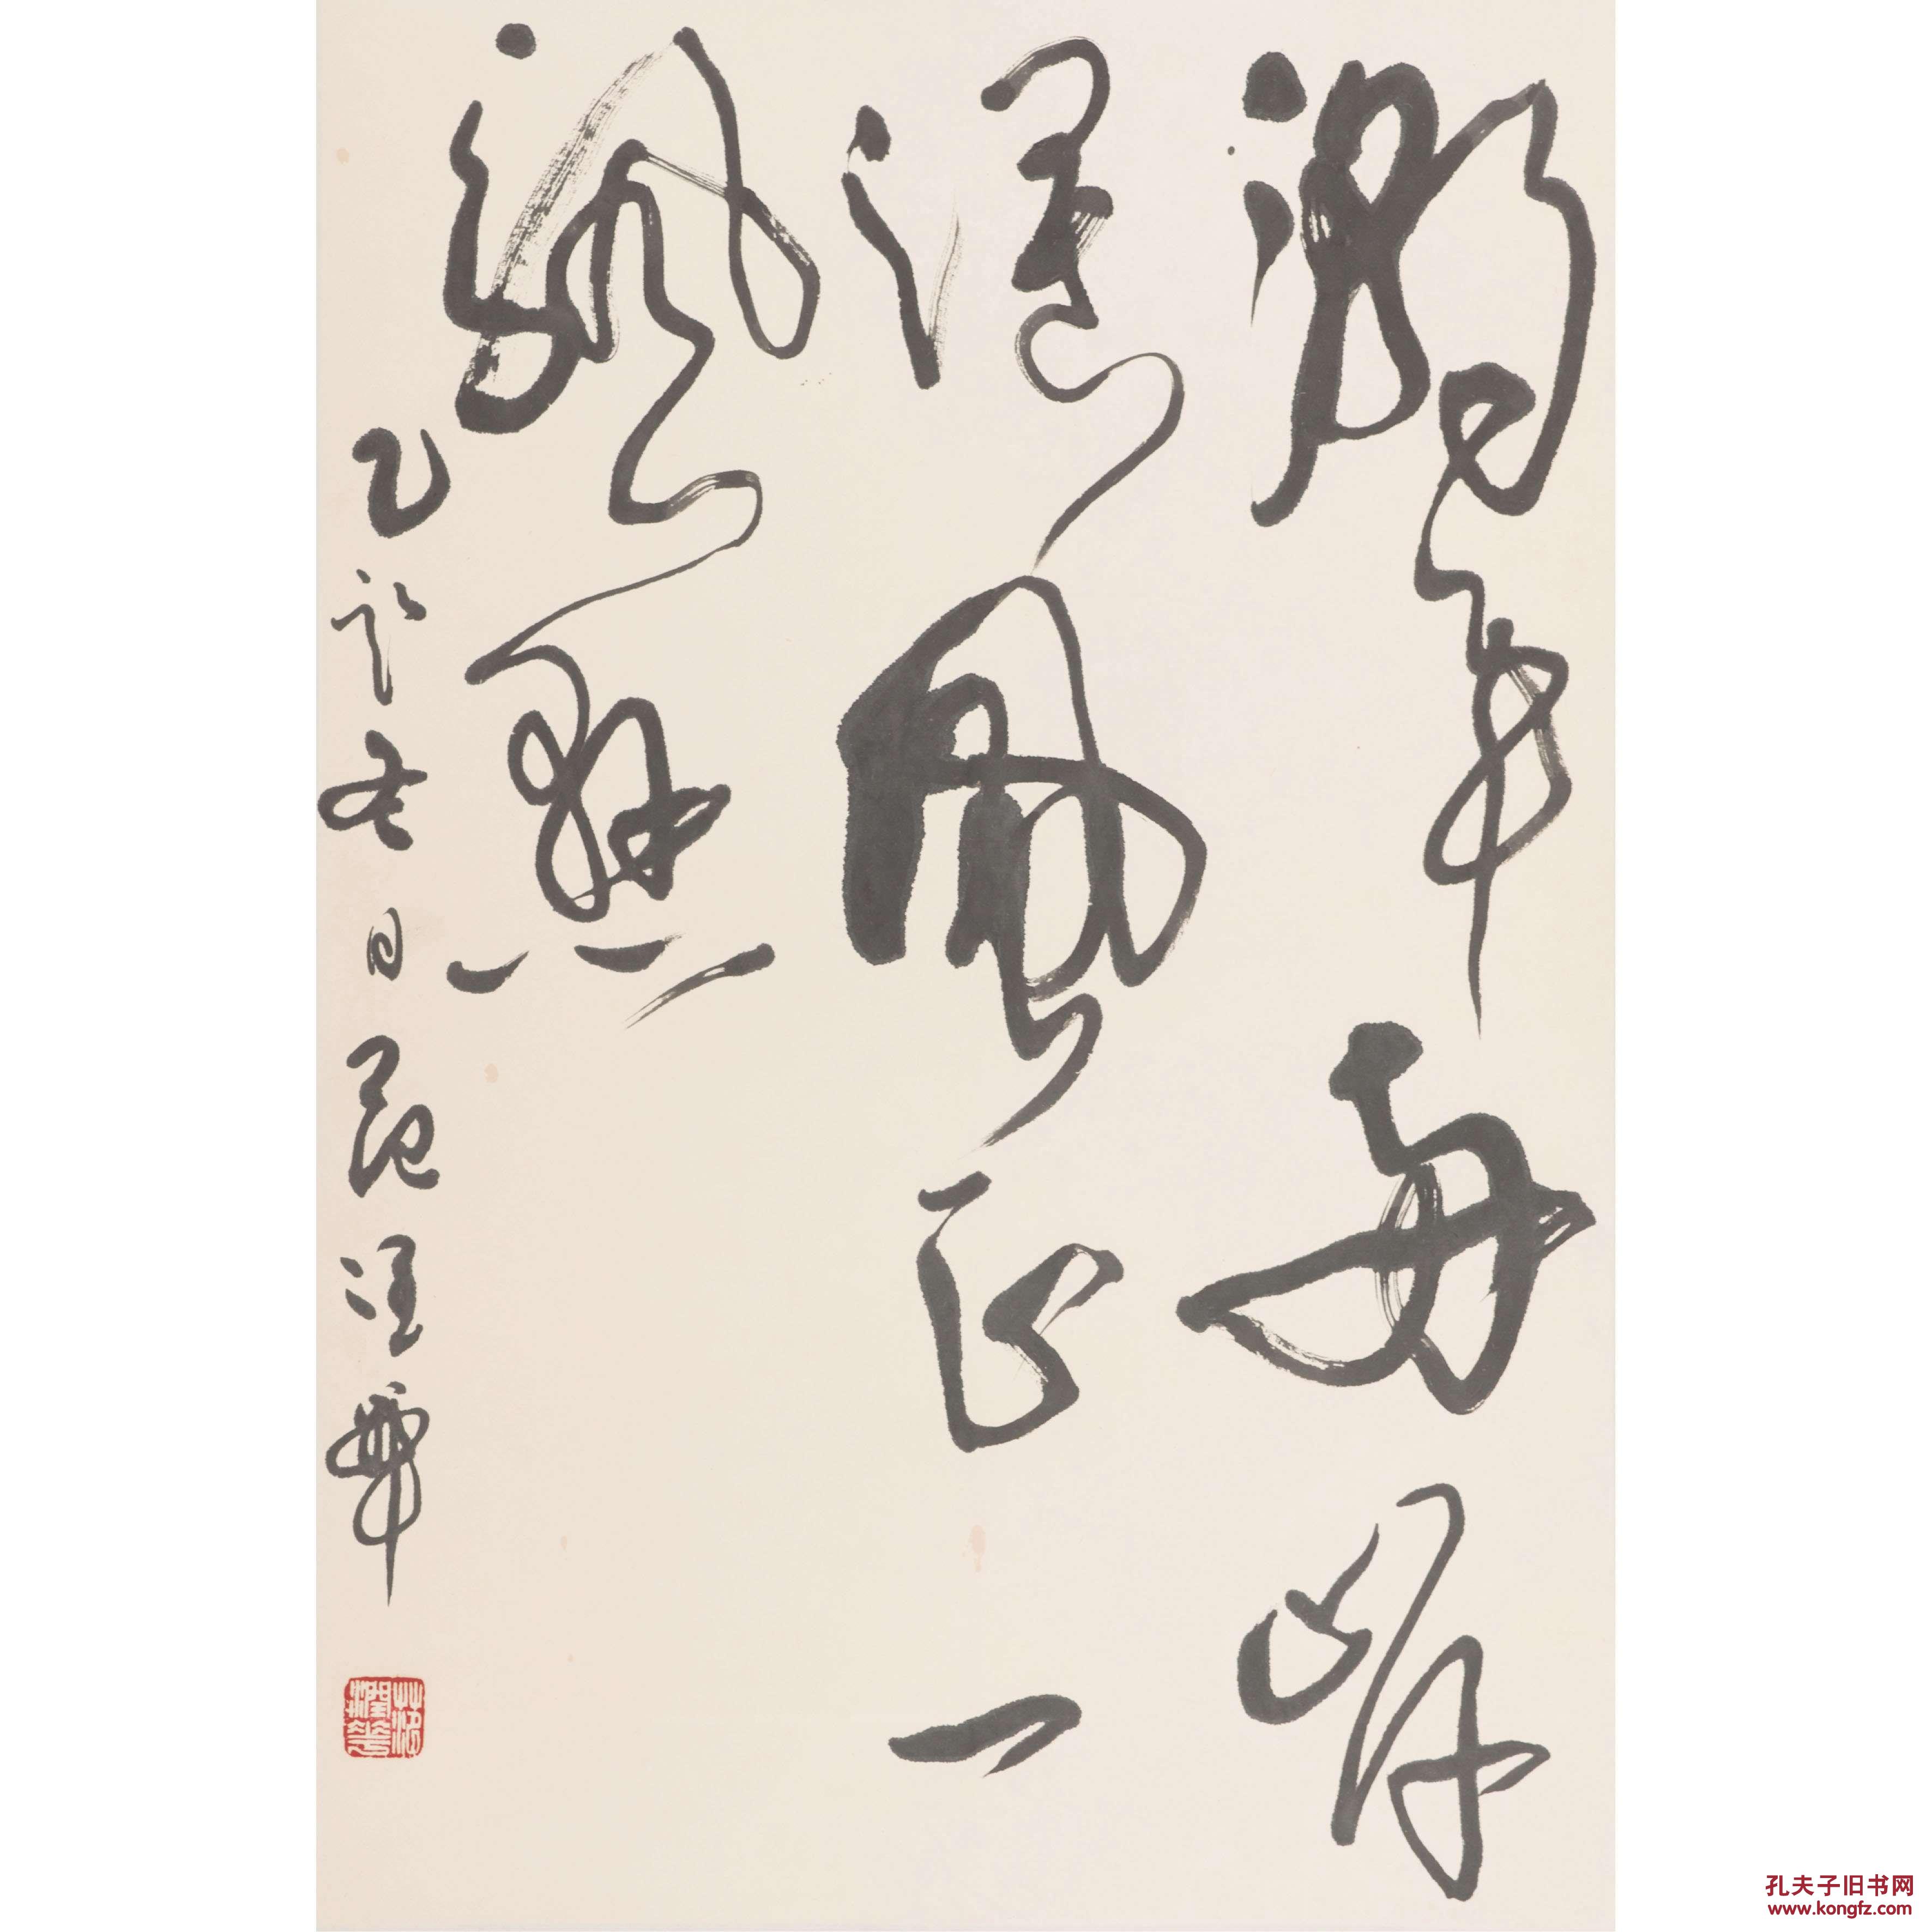 潮平两岸
阔风正一
帆悬
乙酉冬日范润华
范润华
孔夫子旧书网
www.kongfz.com